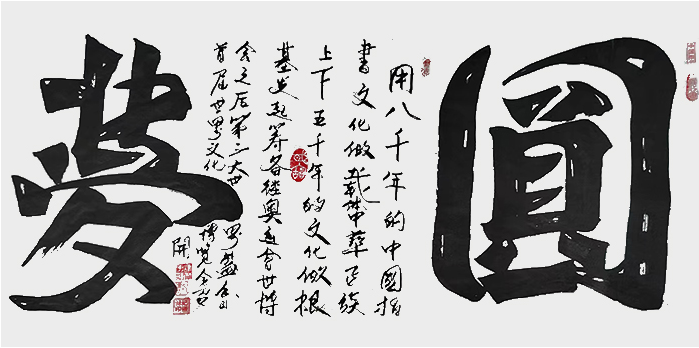 圓
用八千年的中國指
書文化做載體中華民族
上下五千年的文化做根
基发起筹备继奥运会世博
会之后第三大世界盛会
首届世界文化博览会
開
夢